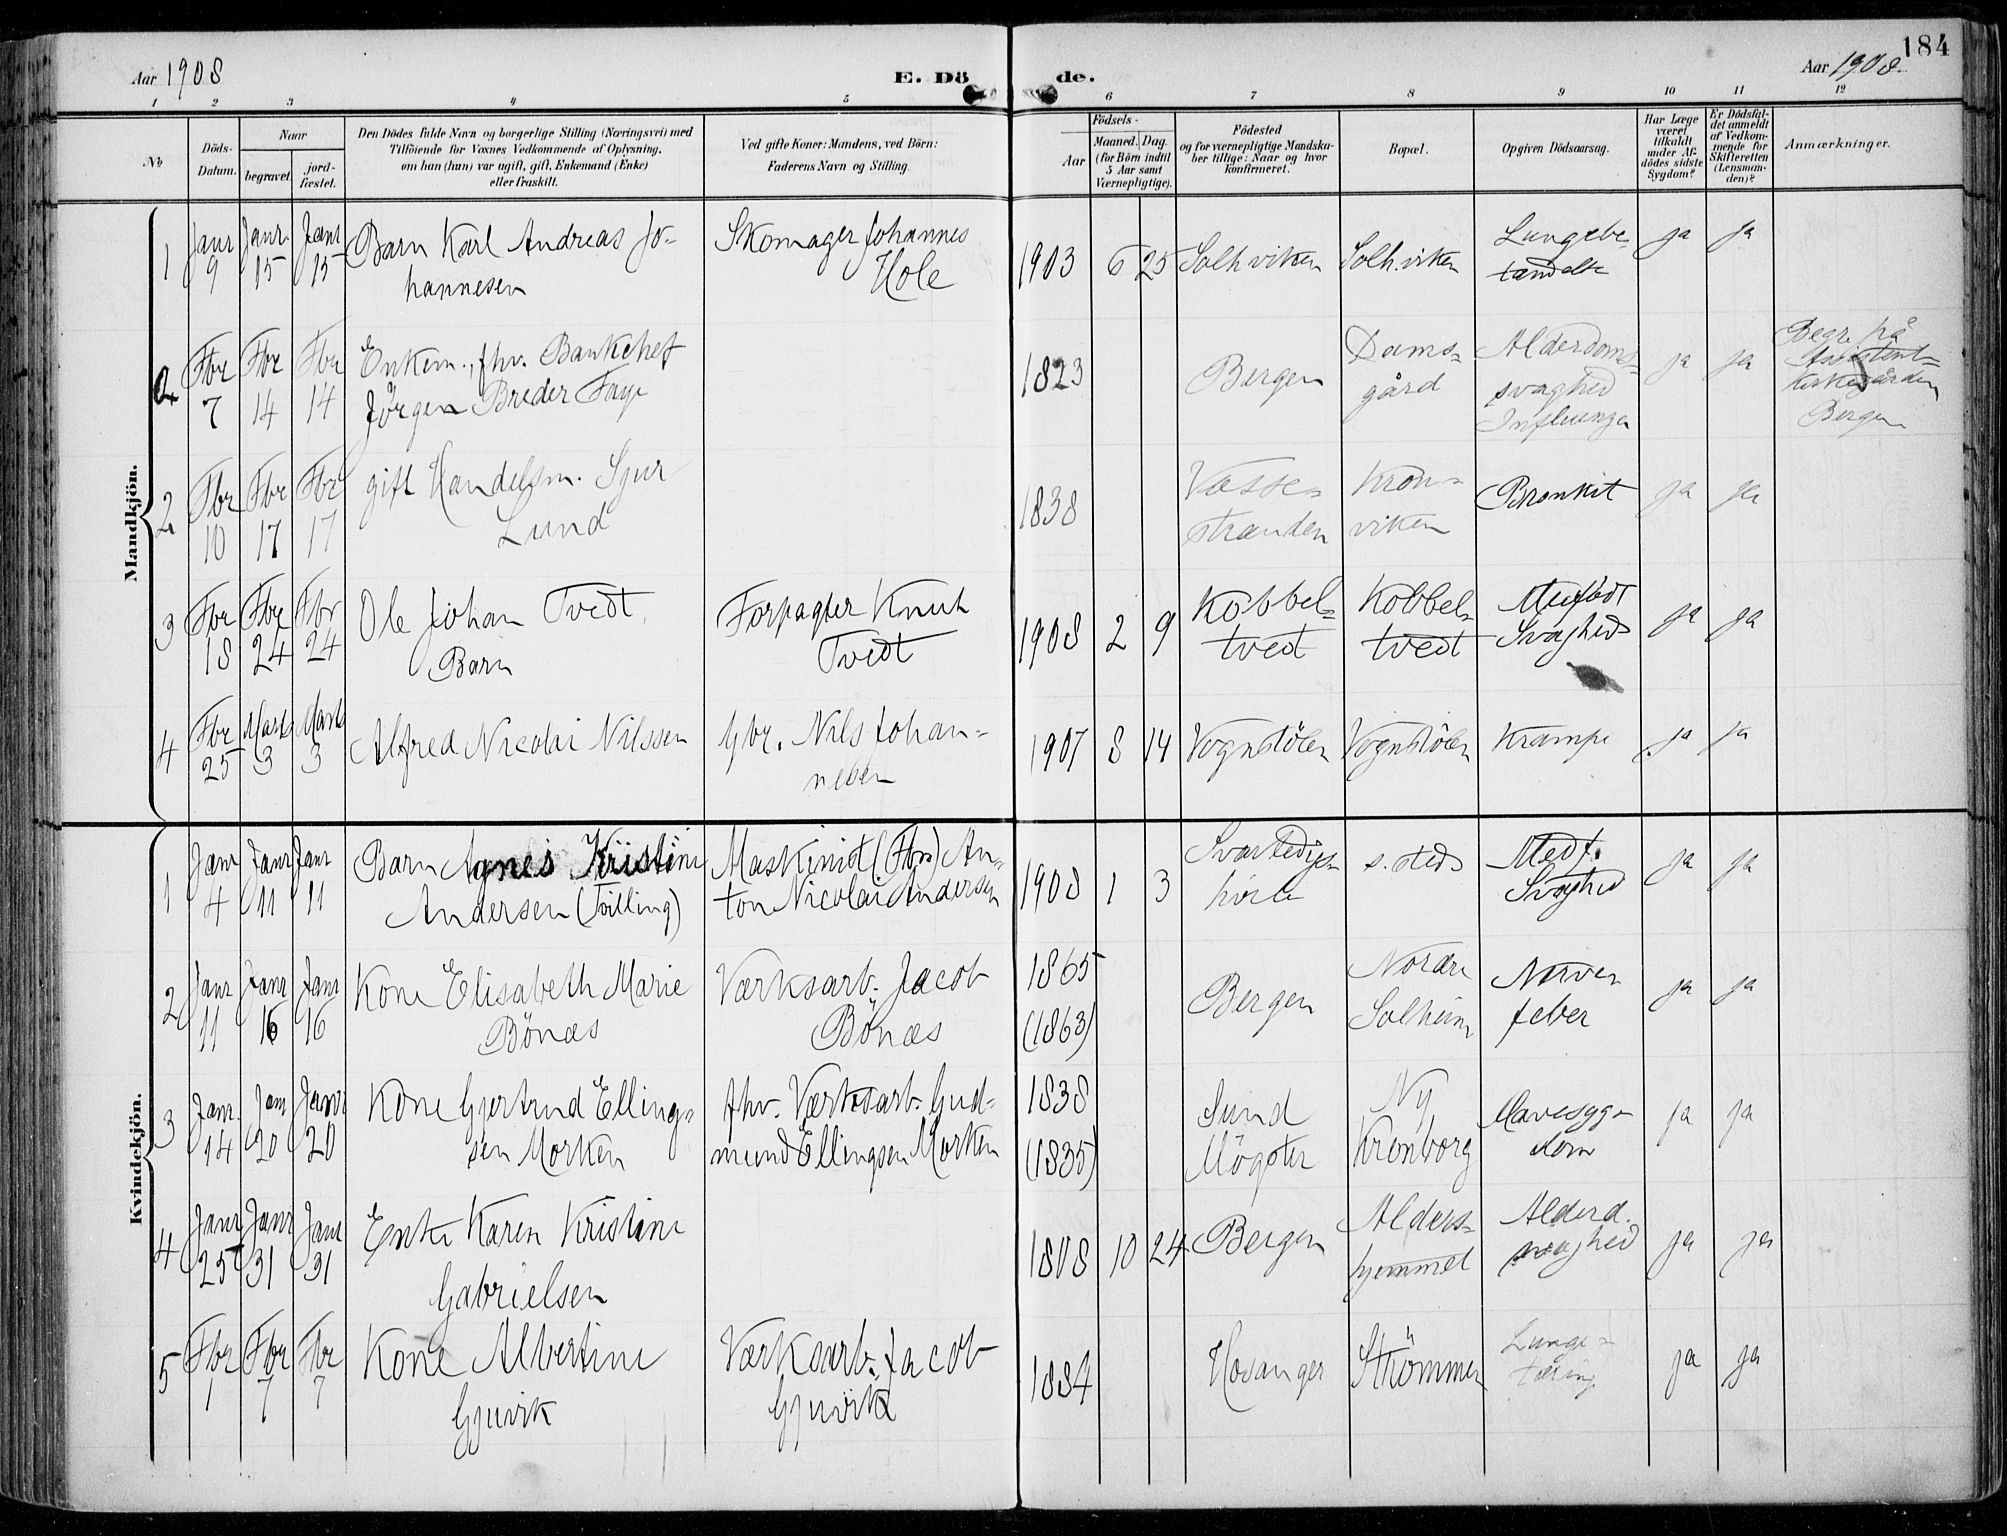 184
Aar 1908
E. Dö de.
Aar 1908.
1 2 3 4 5 6 7 8 9 10 11 12
No
Döds-Datum.
Naar
begravet.
jord-fæstet.
Den Dödes fulde Navn og borgerlige Stilling (Næringsvei) med
Tilföiende for Voxnes Vedkommende af Oplysning,
om han (hun) var ugift, gift, Enkemand (Enke)
eller fraskilt.
Ved gifte Koner: Mandens, ved Börn:
Faderens Navn og Stilling.
Födsels-
Aar
Maaned. Dag.
(for Börn indtil
5 Aar samt
Værnepligtige).
Födested
og for værnepligtige Mandska-
ber tillige: Naar og hvor
konfirmeret.
Bopæl.
Opgiven Dödsaarsag.
Har Læge
været
tilkaldt
under Af-
dödes sidste
Sygdom?
Er Dödsfal-
det anmeldt
af Vedkom-
mende for
Skifteretten
(Lensman-
den)?
Anmærkninger.
Mandkjön.
1 Janr 9 Janr. 15 Janr 15 Barn Karl Andreas Jo-
hannesen
Skomager Johannes
Hole
1903 6 25 Solhviken Solhviken Lungebe-
tændelse ja ja
2 Fbr 7 Fbr 14 Fbr 14 Enkem., fhv. Bankchef
Jörgen Breder Faye
1823 Bergen Dams-
gård
Alderdoms-
svaghed
Influenza
ja ja
Begr. på
Assistent-
kirkegården
Bergen
2 Fbr 10 Fbr 17 Fbr 17 gift Handelsm. Sjur
Lund
1838 Vasse-
stranden
Kron-
viken
Bronkit ja ja
3 Fbr 18 Fbr 24 Fbr 24 Ole Johan Tvedt,
Barn
Forpagter Knut
Tvedt
1908 2 9 Kobbel-
tvedt
Kobbel-
tvedt
Medfødt
Svaghed
ja ja
4 Fbr 25 Marts 3 Marts 3 Alfred Nicolai Nilssen
Gbr. Nils Johan-
nesen
1907 8 14 Vognstölen Vognstölen Krampe ja ja
Kvindekjön.
1 Janr 4 Janr 11 Janr 11 Barn Agnes Kristine
Andersen (Tvilling)
Maskinist (Fbr) An-
ton Nicolai Andersen
1908 1 3 Svartedigs-
hvile
s. steds Medf.
Svaghed
ja ja
2 Janr 11 Janr 16 Janr 16 Kone Elisabeth Marie
Bönæs
Værksarb. Jacob
Bönæs
1865
(1863)
Bergen Nordre
Solheim
Nerve-
feber
ja ja
3 Janr. 14 Jan 20 Janr 20 Kone Gjertrud Elling-
sen Morken
fhv. Værksarb. Gud-
mund Ellingsen Morken
1838
(1835)
Sund
Mögster
Ny
Kronborg
Mavesyg-
dom
ja ja
4 Janr 25 Janr 31 Janr 31 Enke Karen Kristine
Gabrielsen
1808 10 24 Bergen Alders-
hjemmet
Alderd.
svaghed
ja ja
5 Fbr 1 Fbr 7 Fbr 7 Kone Albertine
Gjuvik
Værksarb. Jacob
Gjuvik
1884 Hosanger Strömmen Lunge-
tæring
ja ja